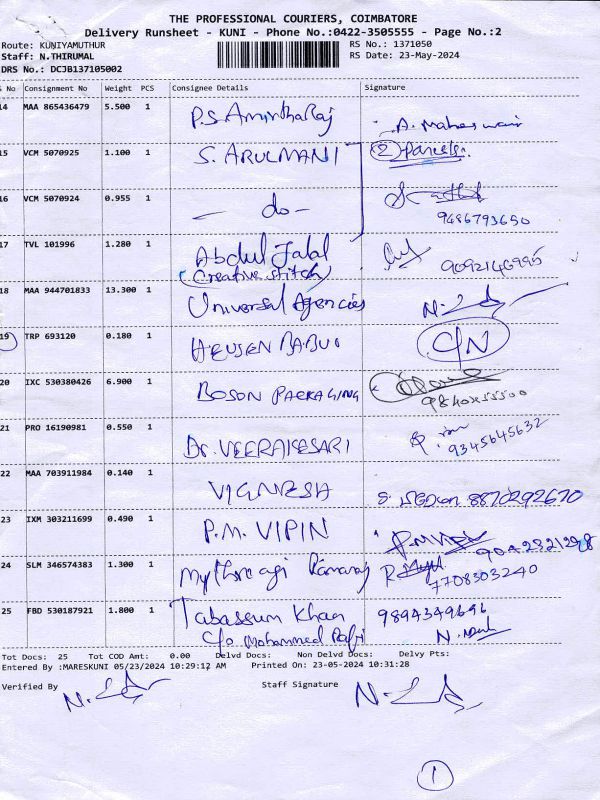 THE PROFESSIONAL COURIERS, COIMBATORE
Delivery Runsheet - KUNI - Phone No.:0422-3505555 - Page No.:2
Route: KUNIYAMUTHUR RS No.: 1371050
Staff: N.THIRUMAL RS Date: 23-May-2024
DRS No.: DCJB137105002
S No Consignment No Weight PCS Consignee Details Signature
14 MAA 865436479 5.500 1 P.S. Amirtharaj A. Maheswari
15 VCM 5070925 1.100 1 S. ARULMANI 2 parcels
16 VCM 5070924 0.955 1 - do - 9486793650
17 TVL 101996 1.280 1 Abdul Jalal 9092146995
(Creative Stitch)
18 MAA 944701833 13.300 1 Universal Agencies
19 TRP 693120 0.180 1 HEUSEN BABU C/N
20 IXC 530380426 6.900 1 BOSON PACKAGING
21 PRO 16190981 0.550 1 Dr. VEERAKESARI 9345645632
22 MAA 703911984 0.140 1 VIGNESH 8870292670
23 IXM 303211699 0.490 1 P.M. VIPIN
24 SLM 346574383 1.300 1 Ramaraj 7708303240
25 FBD 530187921 1.800 1 Tabassum Khan 9894349696
C/o Mohammed Rafi
Tot Docs: 25 Tot COD Amt: 0.00 Delvd Docs: Non Delvd Docs: Delvy Pts:
Entered By :MARESKUNI 05/23/2024 10:29:12 AM Printed On: 23-05-2024 10:31:28
Verified By Staff Signature
1